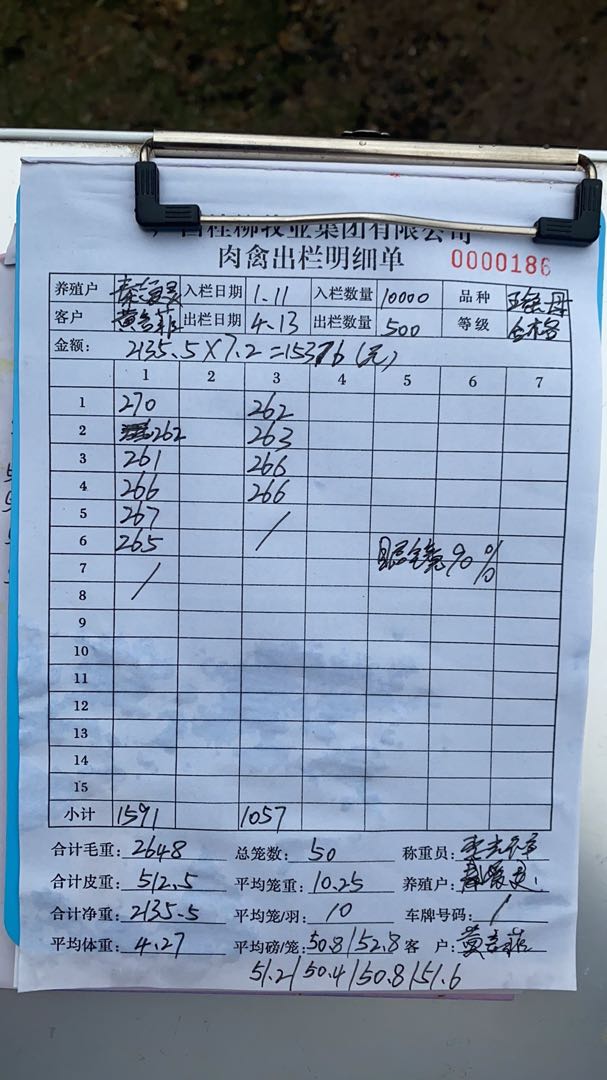 桂柳牧业集团有限公司
肉禽出栏明细单 0000186
养殖户 入栏日期 1.11 入栏数量 10000 品种
客户 出栏日期 4.13 出栏数量 500 等级 合格
金额: 2135.5×7.2=15376(元)
1 2 3 4 5 6 7
1 270 262
2 262 263
3 261 266
4 266 266
5 267 /
6 265 90%
7 /
8
9
10
11
12
13
14
15
小计 1591 1057
合计毛重: 2648 总笼数: 50 称重员:
合计皮重: 512.5 平均笼重: 10.25 养殖户:
合计净重: 2135.5 平均笼/羽: 10 车牌号码: /
平均体重: 4.27 平均磅/笼: 50.8/52.8 客户:
51.2/50.4/50.8/51.6